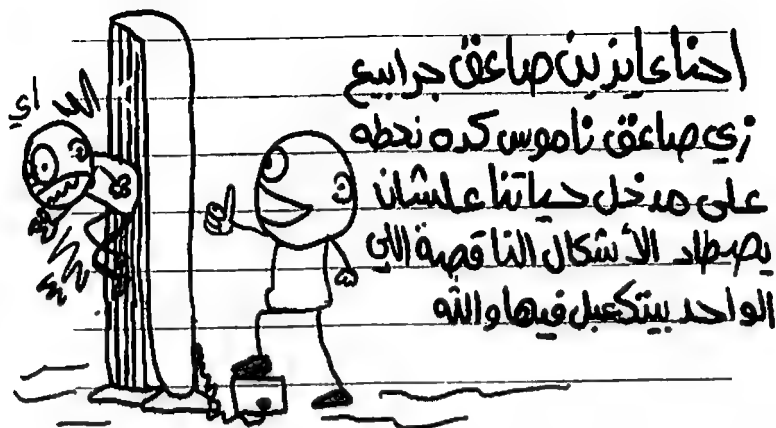 احنا عايزين صاعق جرابيع
زي صاعق ناموس كده نحطه
على مدخل حياتنا علشان
يصطاد الأشكال الناقصة اللي
الواحد بيتكعبل فيها والله
اي